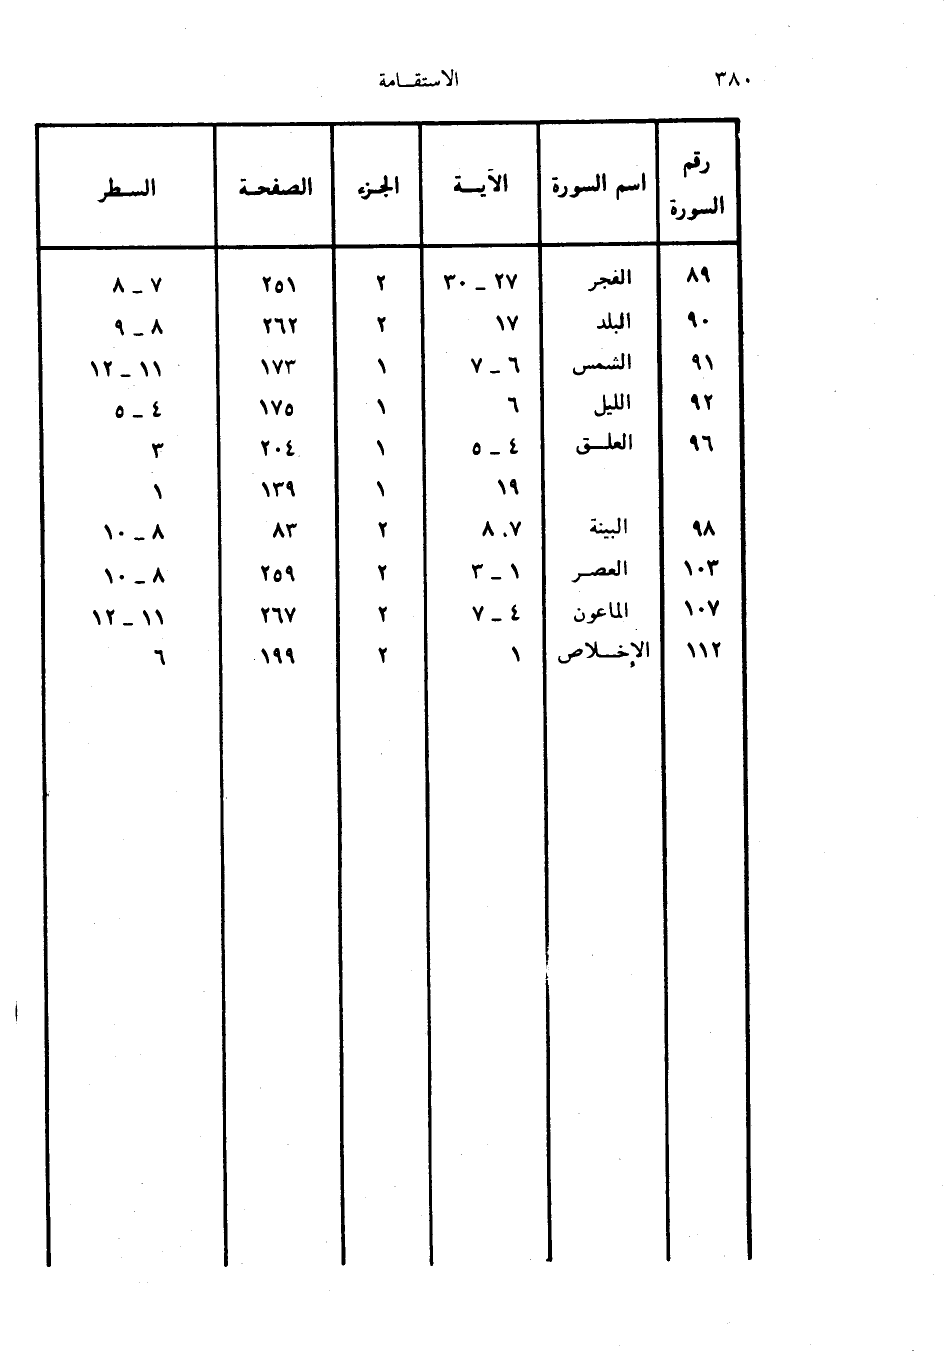 ٣٨٠ الاستقـامة
رقم السورة اسم السورة الآيــة الجزء الصفحة السطر
٨٩ الفجر ٢٧ ــ ٣٠ ٢ ٢٥١ ٧ ــ ٨
٩٠ البلد ١٧ ٢ ٢٦٢ ٨ ــ ٩
٩١ الشمس ٦ ــ ٧ ١ ١٧٣ ١١ ــ ١٢
٩٢ الليل ٦ ١ ١٧٥ ٤ ــ ٥
٩٦ العلـق ٤ ــ ٥ ١ ٢٠٤ ٣
١٩ ١ ١٣٩ ١
٩٨ البينة ٧ . ٨ ٢ ٨٣ ٨ ــ ١٠
١٠٣ العصـر ١ ــ ٣ ٢ ٢٥٩ ٨ ــ ١٠
١٠٧ الماعون ٤ ــ ٧ ٢ ٢٦٧ ١١ ــ ١٢
١١٢ الإخـلاص ١ ٢ ١٩٩ ٦